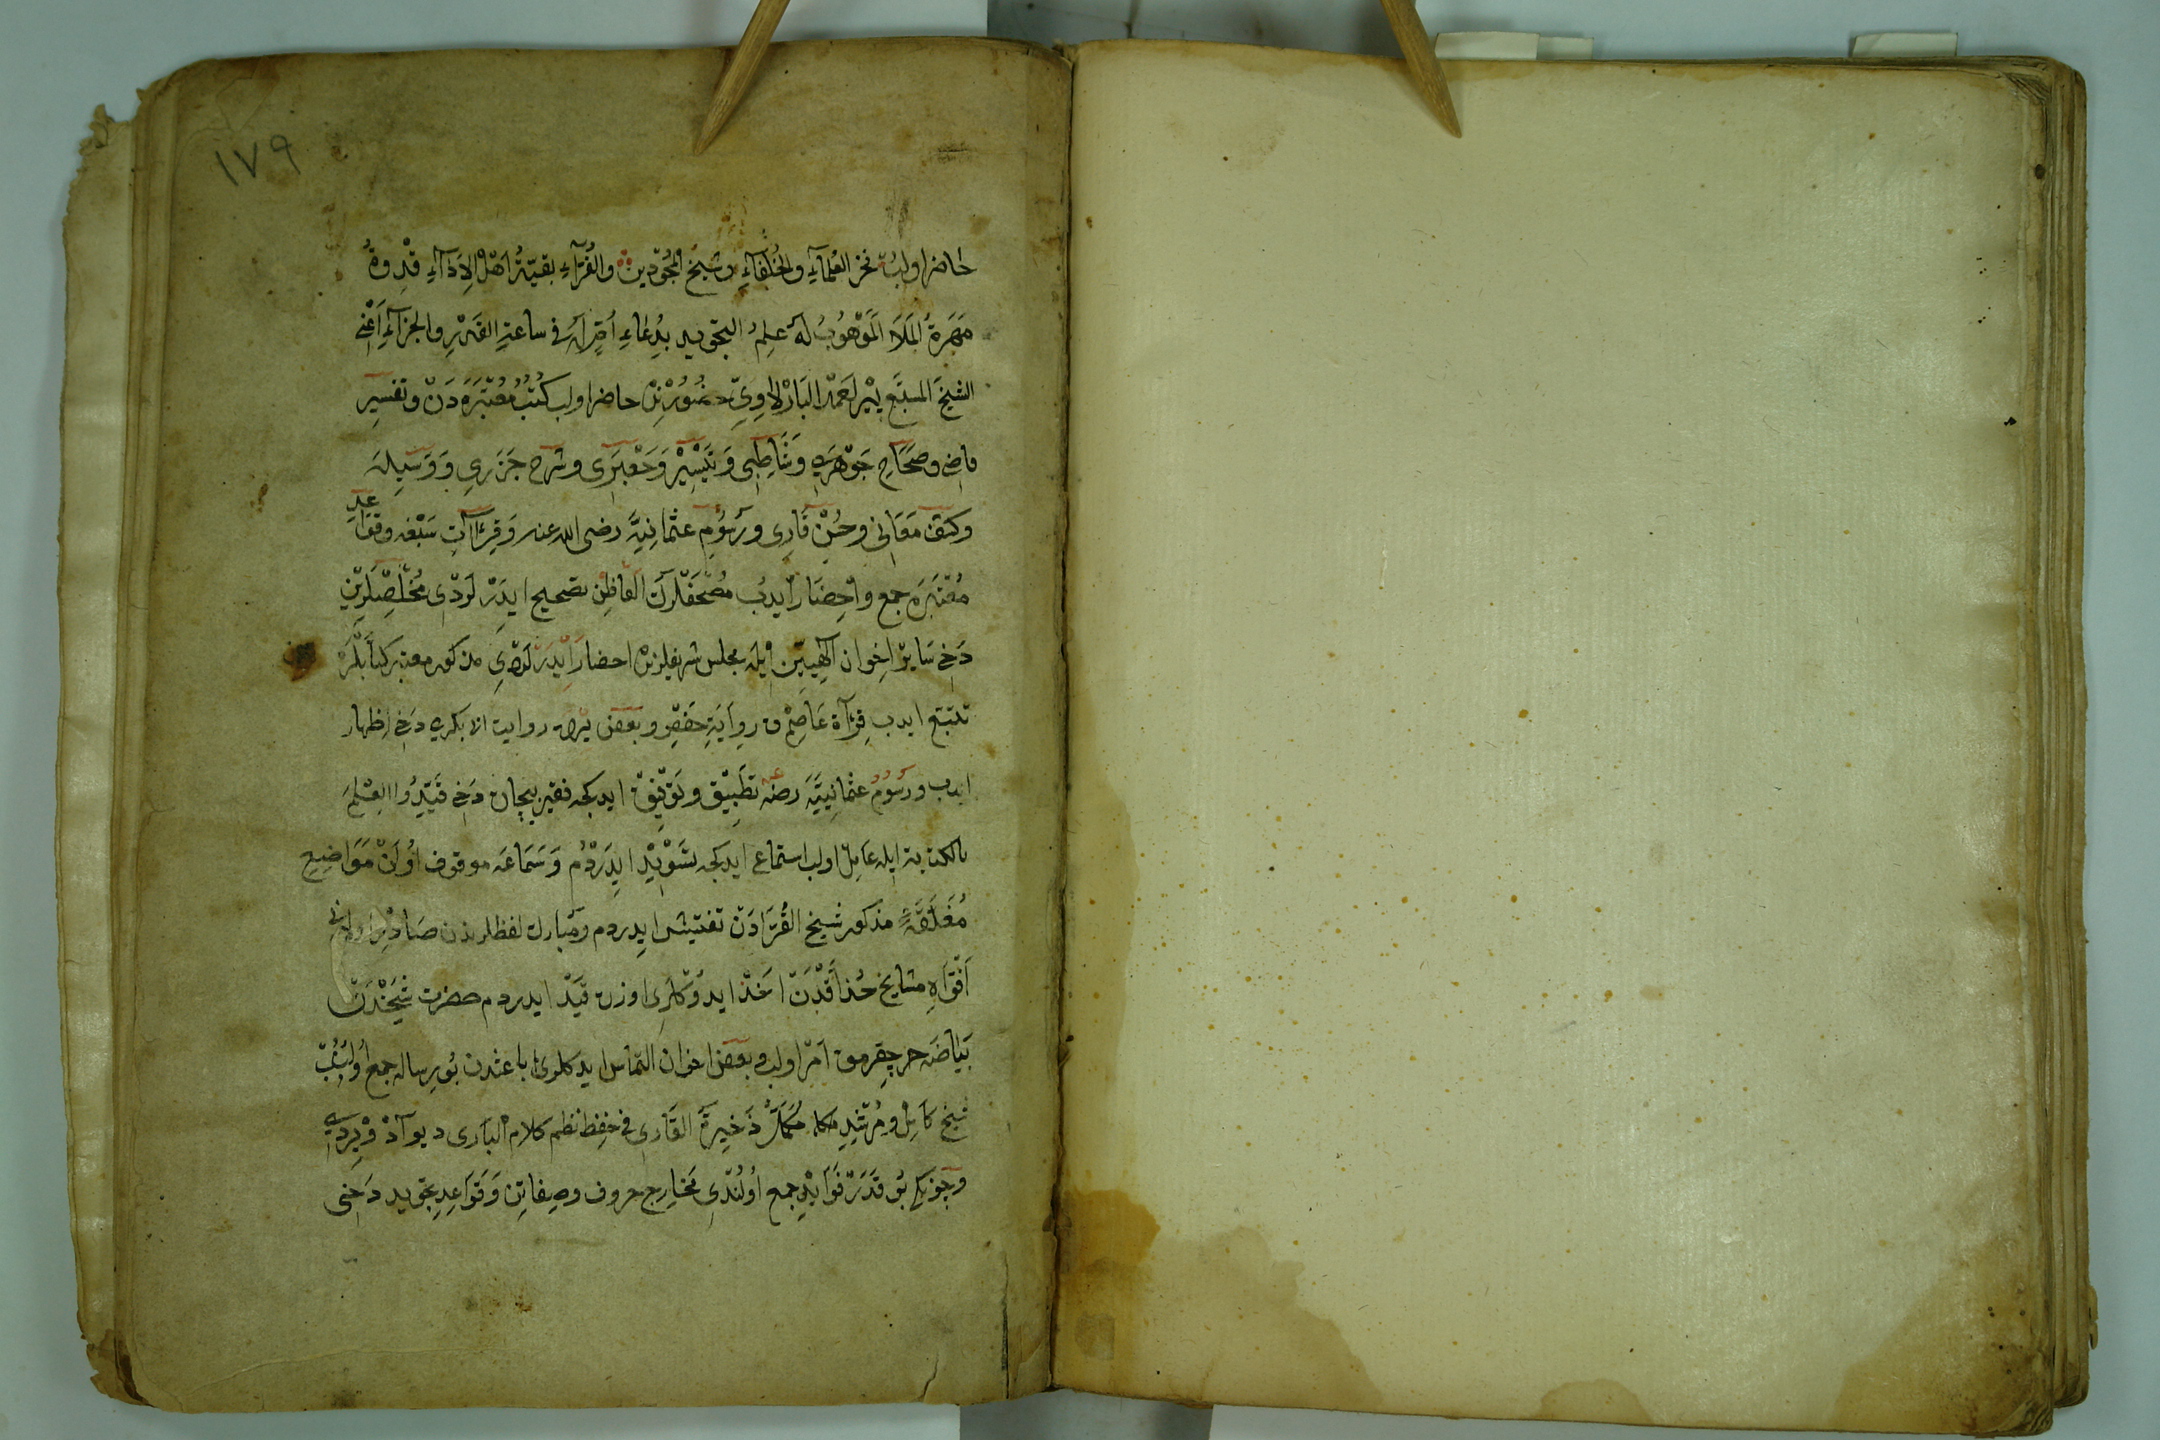 ١٧٩
حاضر اولب فخر العُلمآءِ والخُلَفآءِ وشيخ المُجوّدين والقُرّآءِ بقيّةُ اَهْلِ الاَدَآءِ قدْوةُ
مَهَرةُ المَلَا المَوْهُوبُ لَهُ عِلمُ التجويد بدُعاءِ في ساعةِ القَدْرِ والجزآءِ اَعْنِي
الشيخَ حضُورْنِدْ حاضر اولب كُتُبِ مُعْتَبَرَه دَنْ وتفسيرِ
قاضى وصَحَاحِ جَوْهَرِي وشَاطِبِى وَتَيْسِيرْ وَجَعْبَرِى وشرح جَزَرِي وَوَسِيلَه
وكشف مَعَانِى وحُسْنِ قَارِى ورُسُومِ عثمانِيَّه رضى الله عنه وَقِرَاآتِ سَبْعَه وقواعدِ
مُعْتَبَرَه جمع واِحْضَار ايدب مُصْحَفْلَرِكْ اَلفاظِن تصحيح ايدَرْلَرْدِى مُخْلِصْلَرِيْنِ
دَخِى سَايِرْ اِخوان اِلٰهِيِّين ايله مجلس شريفلرنه احضار ايدَرْلَرْدِى مذكور معتبر كتابْلَرْ
تتبّع ايدب قِرَآةِ عَاصِمْ رِوَايَةِ حَفْصِ وبعض يرده روايت ابى بكرى دَخِى اِظهار
ايدب ورُسُومُ عثمانِيَّه رضه تطبِيْق وتَوْفِيْق ايديكجه فقير بيجان دَخِى قَيِّدُوا العِلْمَ
بالكتابة ايله عَامِل اولب استماع ايديكجه تَسْوِيْد ايدَرْدُم وَسَمَاعَه موقوف اُولَنْ مَوَاضِيعِ
مُغْلَقَه مذكور شيخ القُرَّادَن تفتيش ايدردم ومُبارك لفظلرندن صَادِر اولانى
اَفْوَاهِ مشايخ حُذّاقْدَنْ اَخْذ ايدُوكْلَرِى اوزره قَيْد ايدردم حضرت شَيْخْدَنْ
بَيَاضَه چِقرمق اَمْر اولب وبعض اخوان التماس ايدكلرى باعثدن بُو رِساله جمع اُولُنُبْ
شيخ كَامِل ومُرشِدِ مُكَمَّل ذَخِيرَةُ القَارِى فى حِفظِ نَظم كلام البَارى ديو آدْ وِيرْدى
وچونكه بُو قَدَرْ فَوَايِد جمع اُولُنْدِى مَخَارِج حروف وصِفاتِن وَقَوَاعِدِ تجويد دَخِى